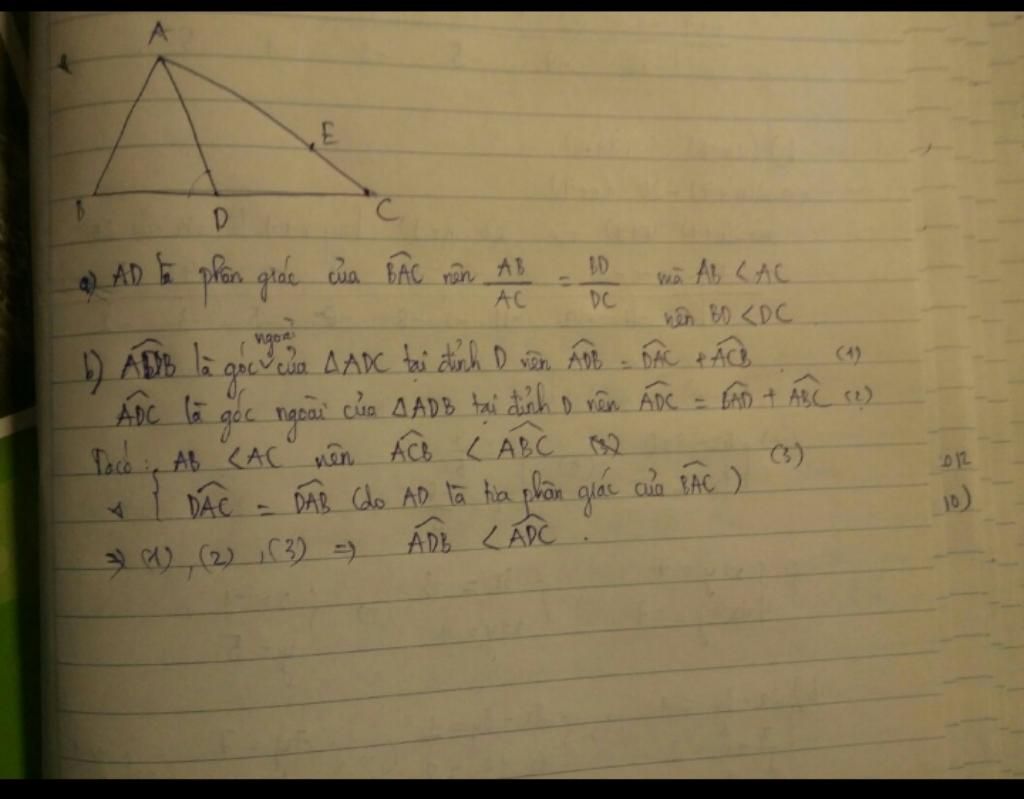 A
E
B
D
C
a) AD là phân giác của BAC nên AB/AC = BD/DC mà AB < AC
nên BD < DC
ngoài
b) ADB là góc của ΔADC tại đỉnh D nên ADB = DAC + ACB (1)
ADC là góc ngoài của ΔADB tại đỉnh D nên ADC = BAD + ABC (2)
Ta có: AB < AC nên ACB < ABC (3)
DAC = DAB (do AD là tia phân giác của BAC)
⇒ (1), (2), (3) ⇒ ADB < ADC.
10)